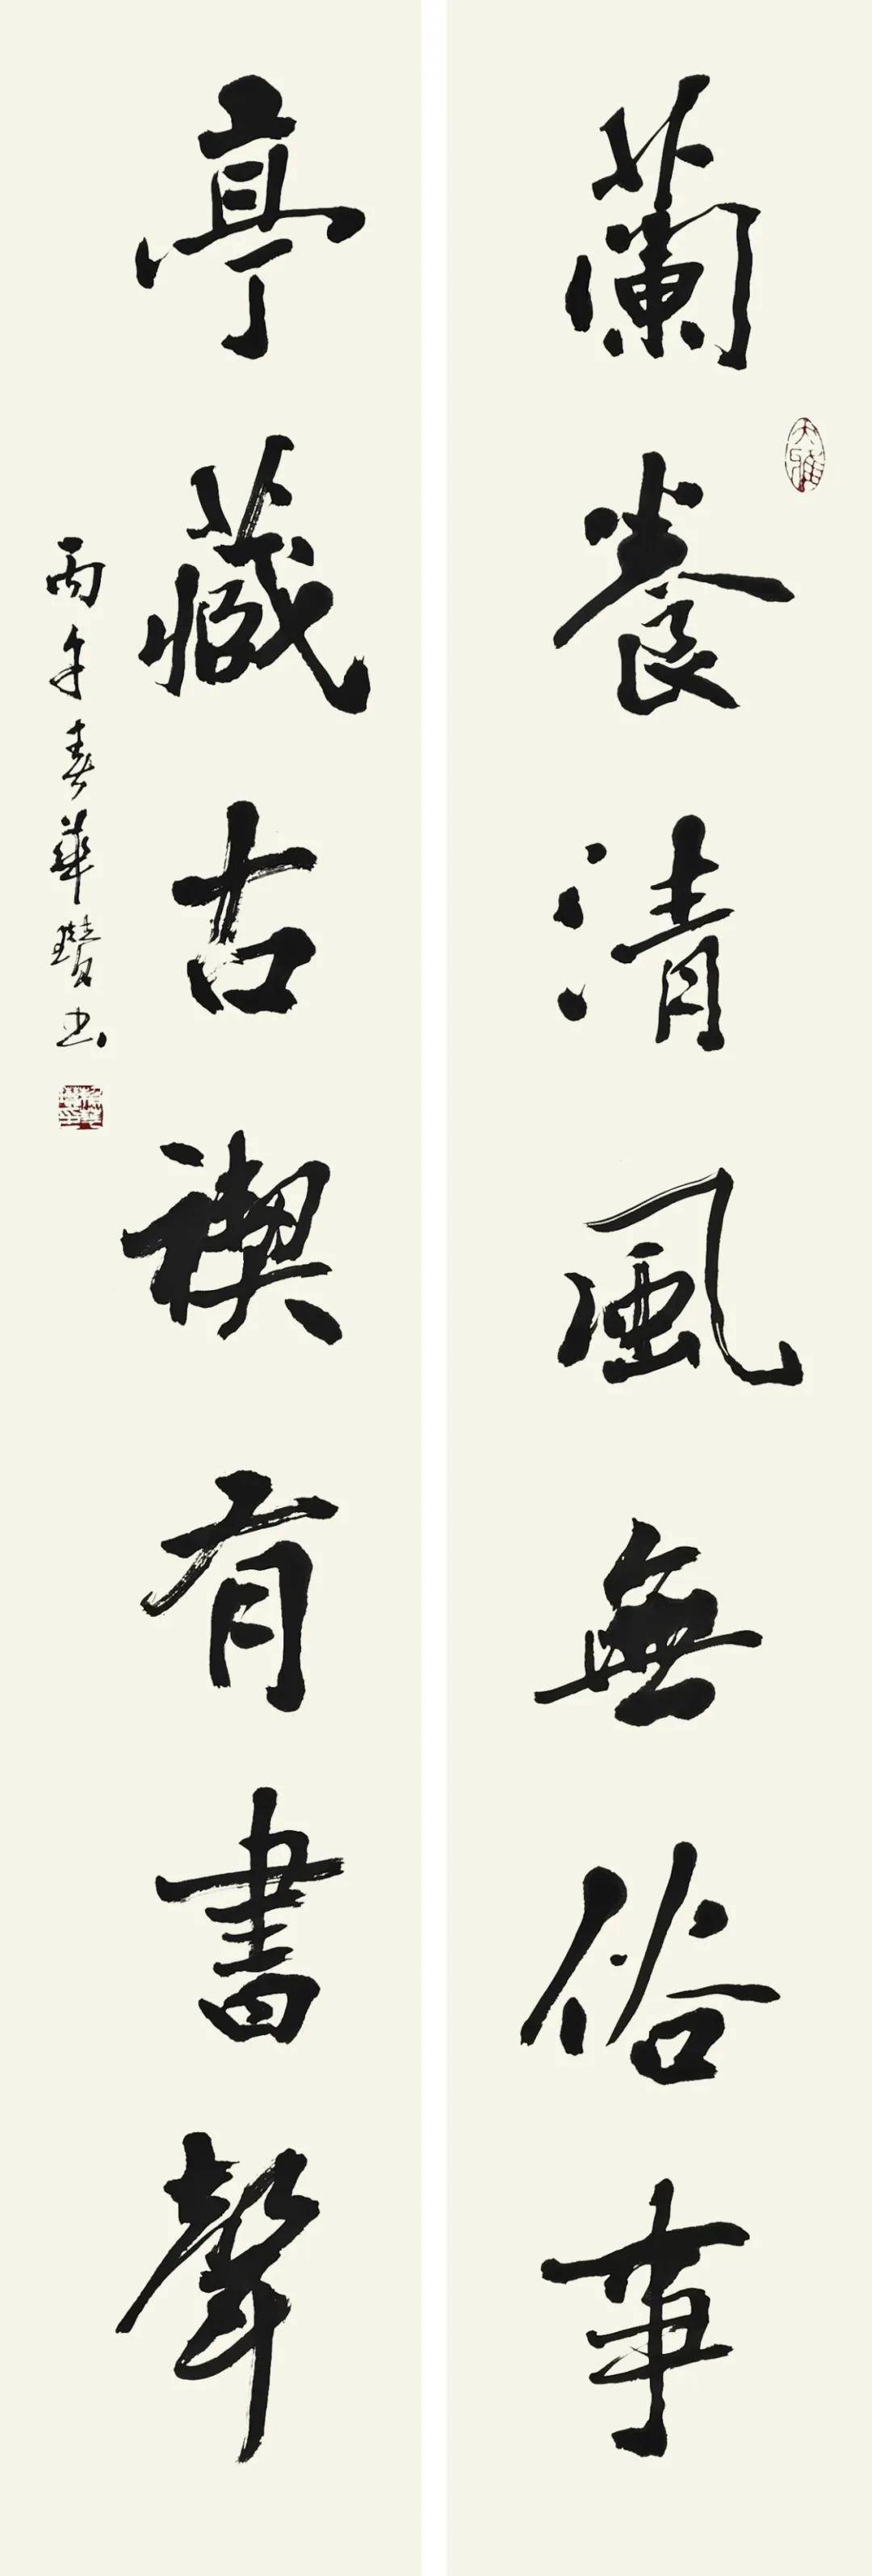 蘭養清風無俗事
亭藏古禊有書聲
丙午春華瓚書
大雅